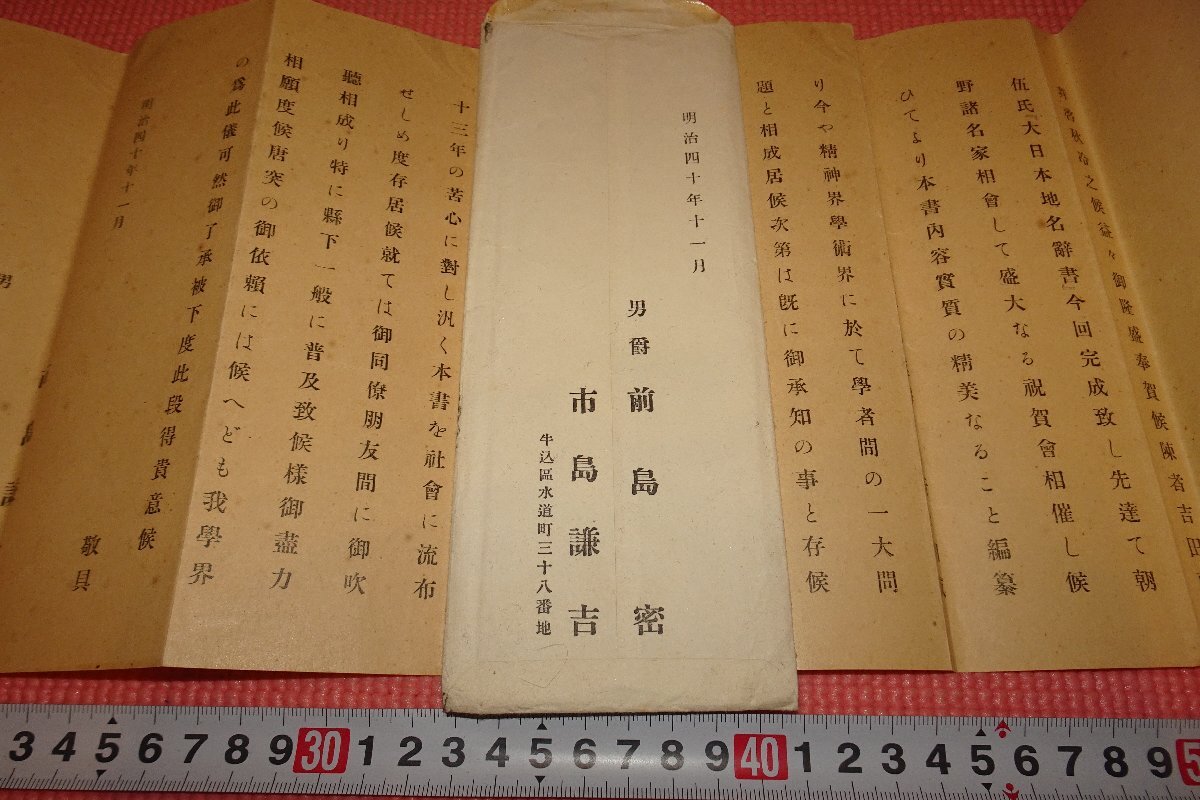 之候益々御隆盛奉賀候陳者吉田
伍氏『大日本地名辭書』今回完成致し先達て朝
野諸名家相會して盛大なる祝賀會相催し候
ひてより本書內容實質の精美なること編纂
り今や精神界學術界に於て學者間の一大問
題と相成居候次第は旣に御承知の事と存候
明治四十年十一月
男爵 前島密
市島謙吉
牛込區水道町三十八番地
十三年の苦心に對し汎く本書を社會に流布
せしめ度存居候就ては御同僚朋友間に御吹
聽相成り特に縣下一般に普及致候樣御盡力
相願度候唐突の御依賴には候へども我學界
の爲此儀可然御了承被下度此段得貴意候
敬具
明治四十年十一月
男
3 4 5 6 7 8 9 30 1 2 3 4 5 6 7 8 9 40 1 2 3 4 5 6 7 8 9 5